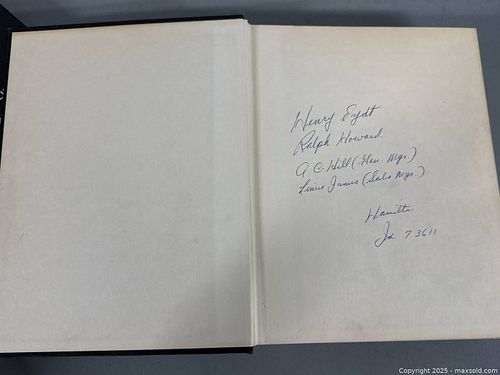 Henry Eydt
Ralph Howard.
A. C. Hill (Gen. Mgr.)
Linus James (Sales Mgr.)
Hamilton.
73611
Copyright 2025 - maxsold.com